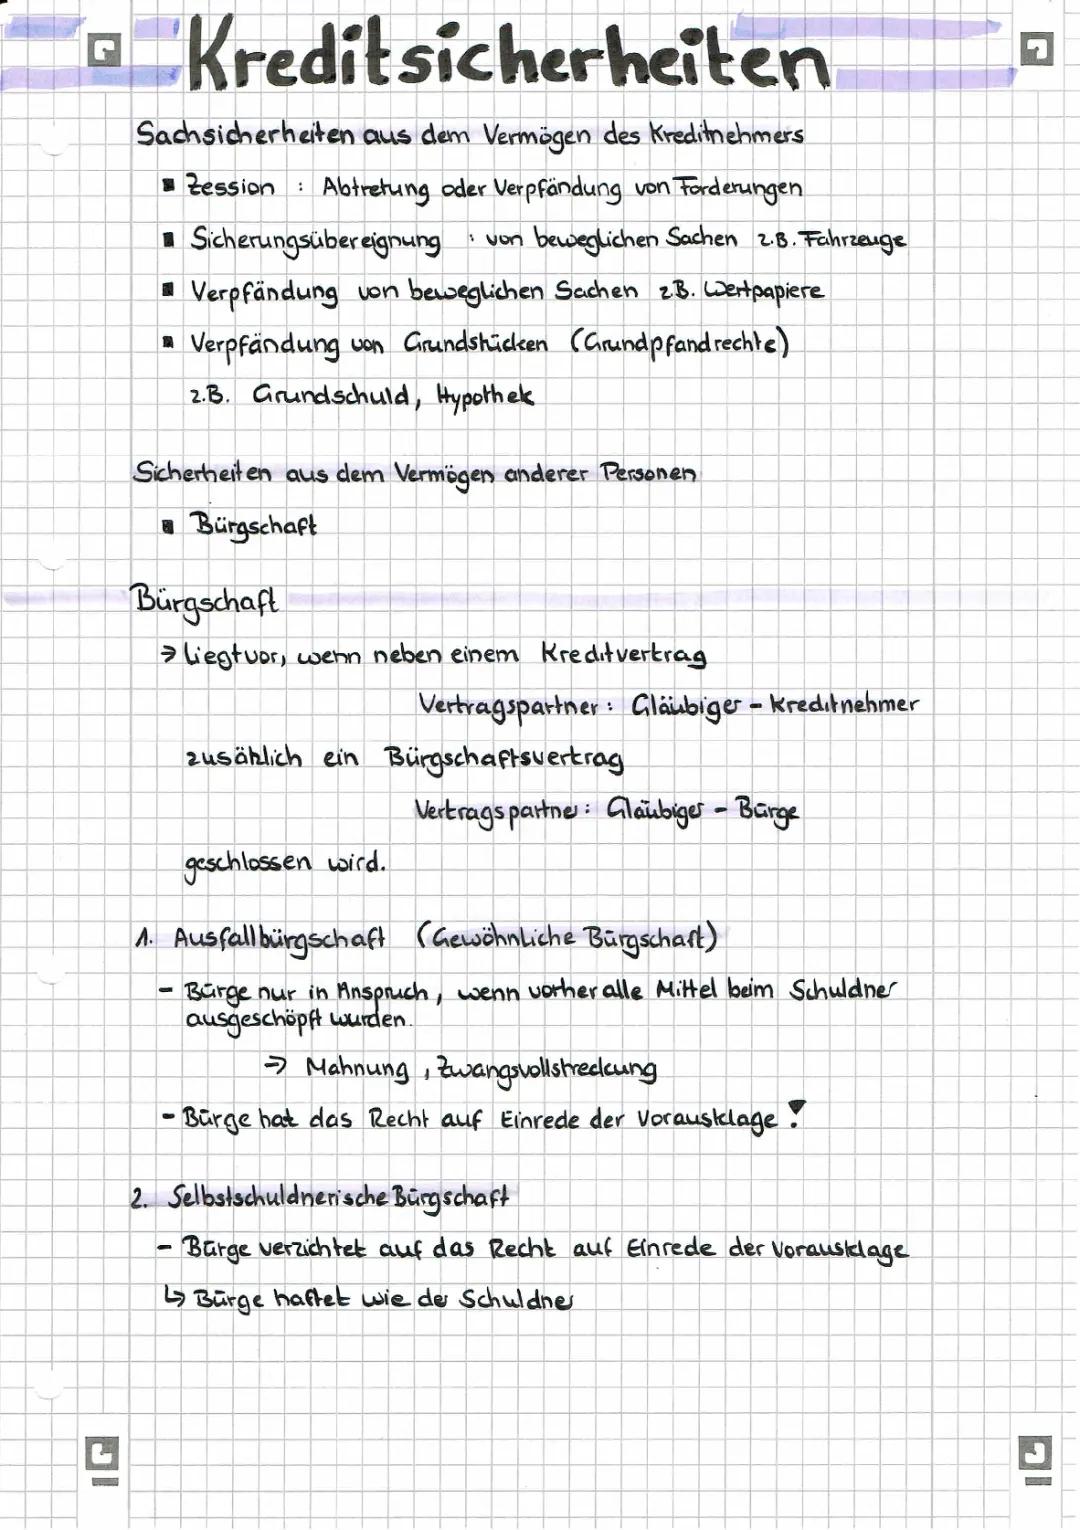 Kreditsicherheiten
Sachsicherheiten aus dem Vermögen des Kreditnehmers
▪ Zession : Abtretung oder Verpfändung von Forderungen
▪ Sicherungsübereignung : von beweglichen Sachen z.B. Fahrzeuge
▪ Verpfändung von beweglichen Sachen z.B. Wertpapiere
▪ Verpfändung von Grundstücken (Grundpfandrechte)
z.B. Grundschuld, Hypothek
Sicherheiten aus dem Vermögen anderer Personen
▪ Bürgschaft
Bürgschaft
→ Liegt vor, wenn neben einem Kreditvertrag
Vertragspartner : Gläubiger - Kreditnehmer
zusätzlich ein Bürgschaftsvertrag
Vertragspartner : Gläubiger - Bürge
geschlossen wird.
1. Ausfallbürgschaft (Gewöhnliche Bürgschaft)
- Bürge nur in Anspruch, wenn vorher alle Mittel beim Schuldner
ausgeschöpft wurden.
→ Mahnung, Zwangsvollstreckung
- Bürge hat das Recht auf Einrede der Vorausklage !
2. Selbstschuldnerische Bürgschaft
- Bürge verzichtet auf das Recht auf Einrede der Vorausklage
↳ Bürge haftet wie der Schuldner